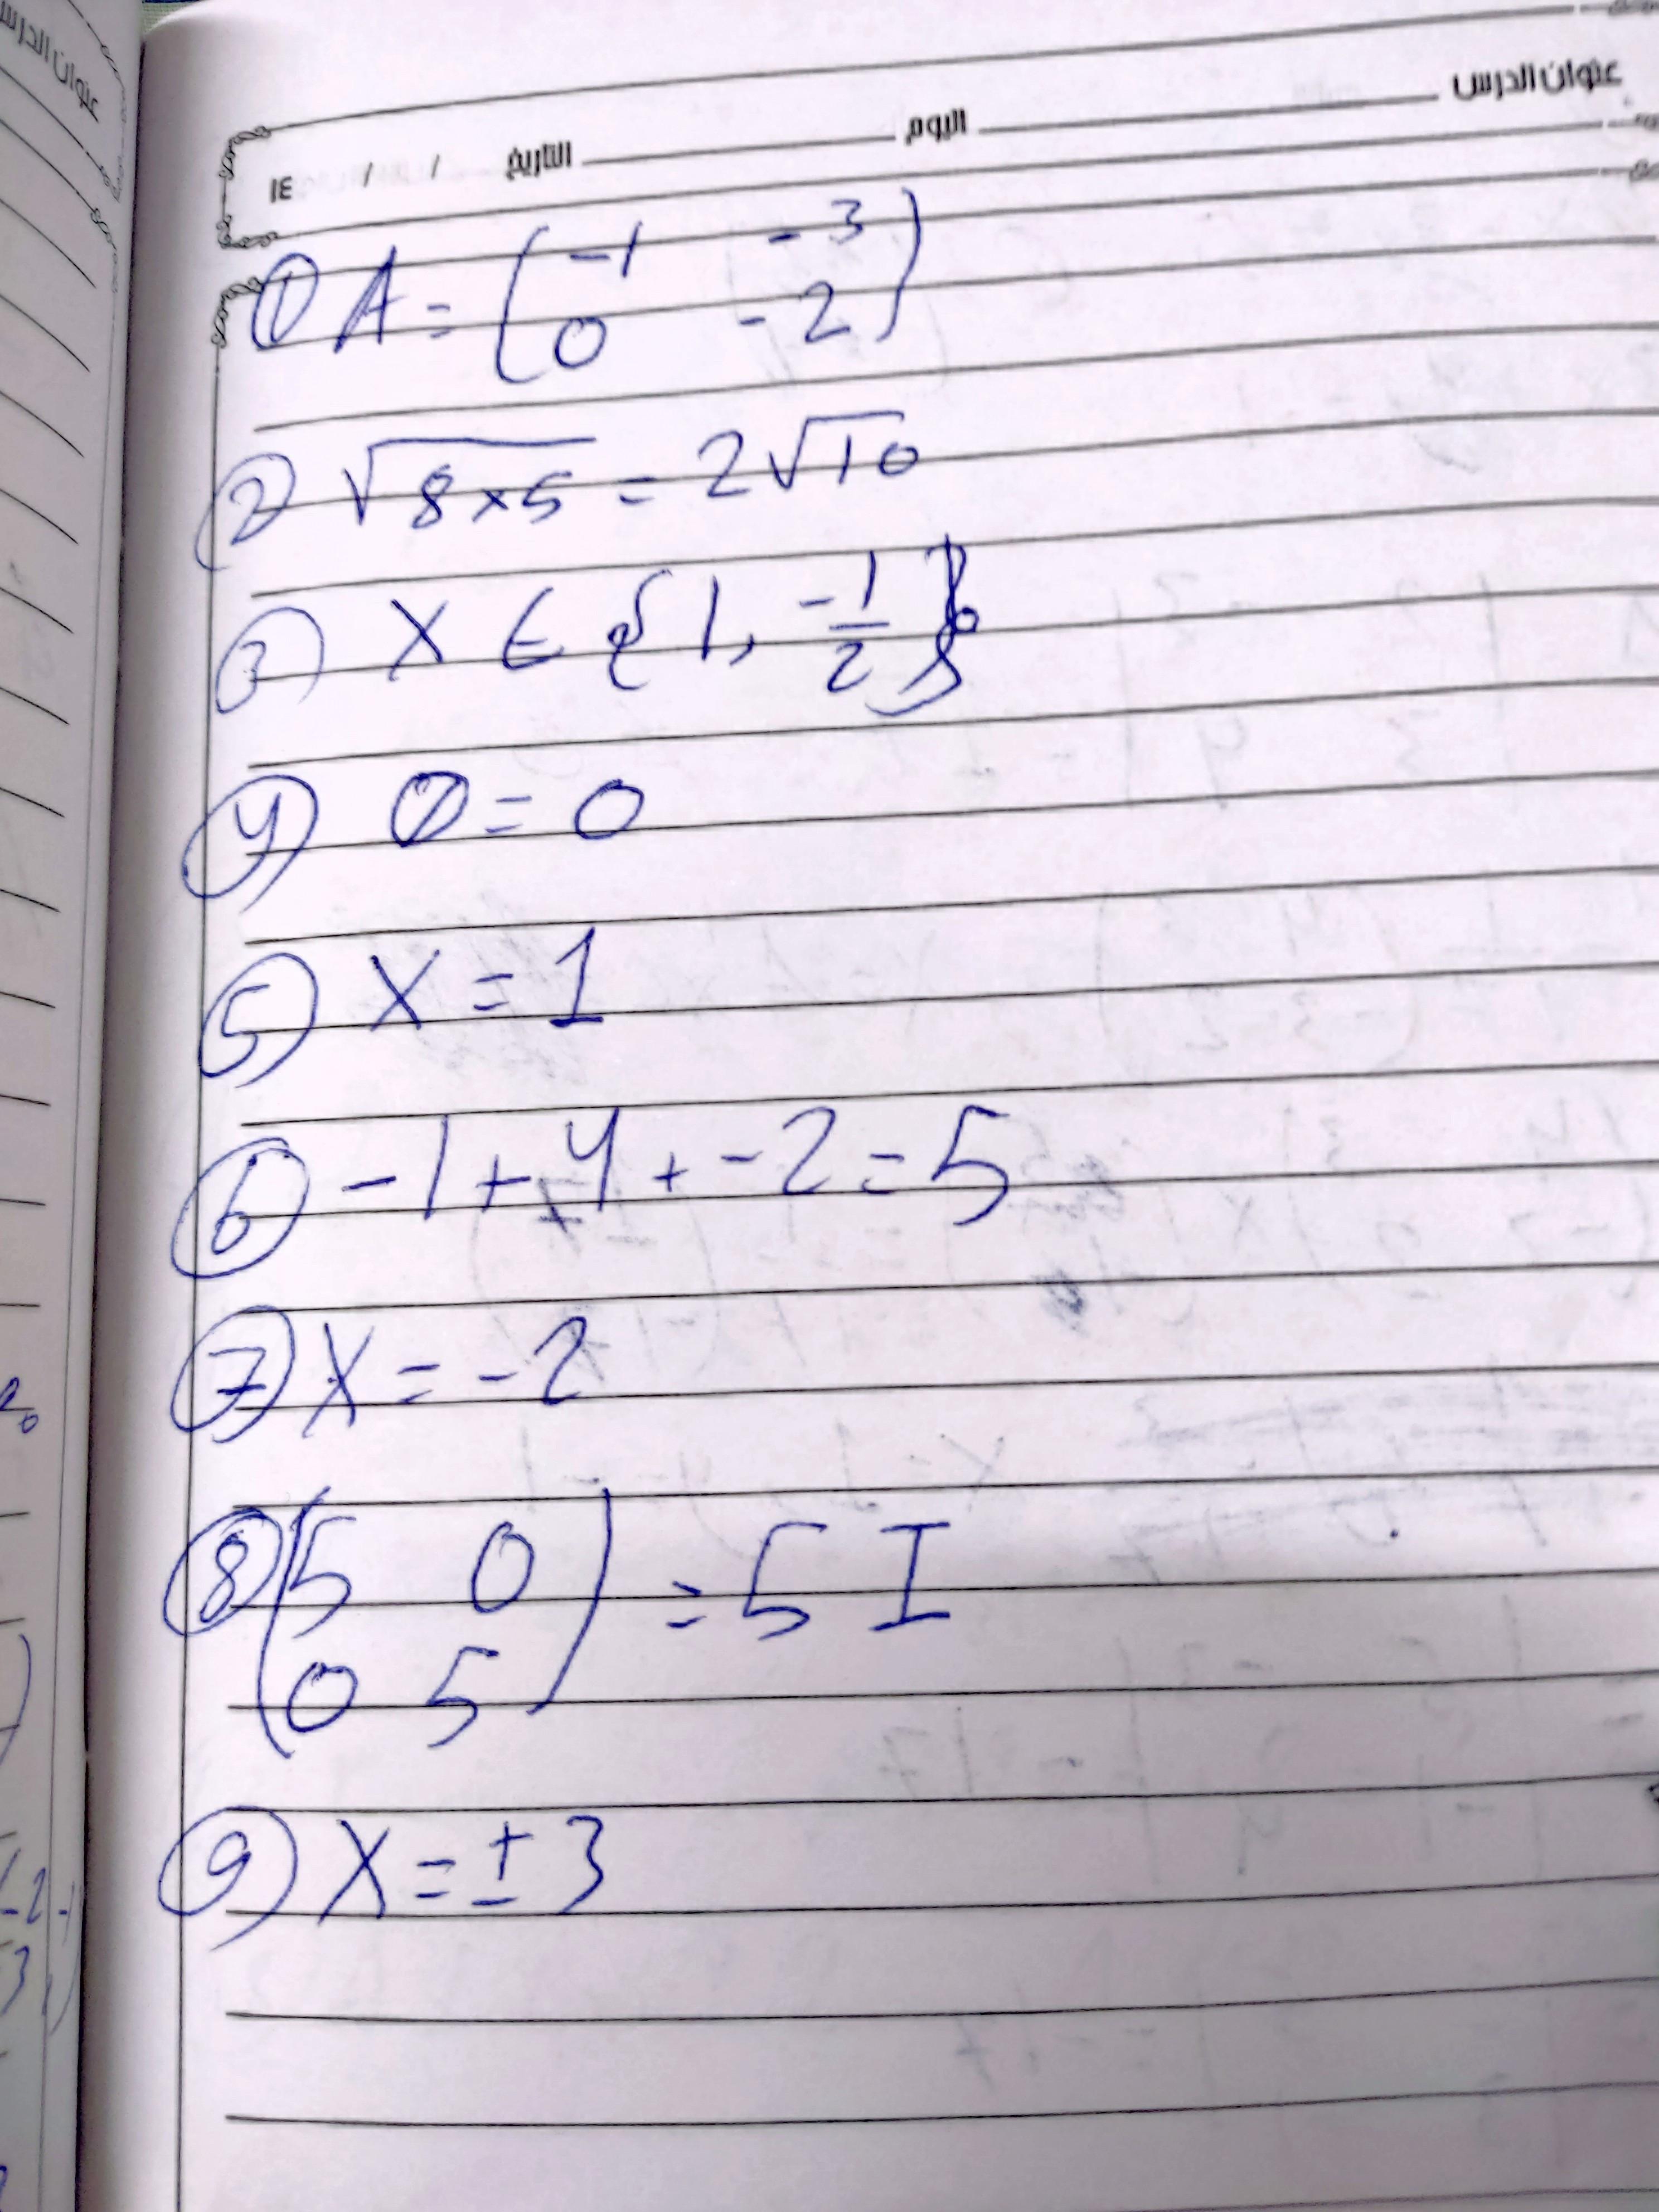 عنوان الدرس اليوم التاريخ / / ١٤
① A = ( -1 -3
0 -2 )
② √8×5 = 2√10
③ X ∈ { 1, -1/2 }
④ 0 = 0
⑤ X = 1
⑥ -1 + 4 + -2 = 5
⑦ X = -2
⑧ ( 5 0
0 5 ) = 5 I
⑨ X = ± 3